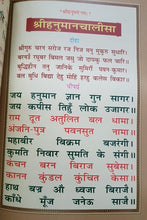 श्रीहनुमानचालीसा
दोहा
श्रीगुरु चरन सरोज रज निज मनु मुकुरु सुधारि।
बरनउँ रघुबर बिमल जसु जो दायकु फल चारि॥
बुद्धिहीन तनु जानिके सुमिरौं पवन-कुमार।
बल बुधि बिद्या देहु मोहिं हरहु कलेस बिकार॥
चौपाई
जय हनुमान ज्ञान गुन सागर
जय कपीस तिहुँ लोक उजागर॥
राम दूत अतुलित बल धामा।
अंजनि-पुत्र पवनसुत नामा॥
महाबीर बिक्रम बजरंगी।
कुमति निवार सुमति के संगी॥
कंचन बरन बिराज सुबेसा।
कानन कुंडल कुंचित केसा॥
हाथ बज्र औ ध्वजा बिराजै।
काँधे मूँज जनेऊ साजै॥